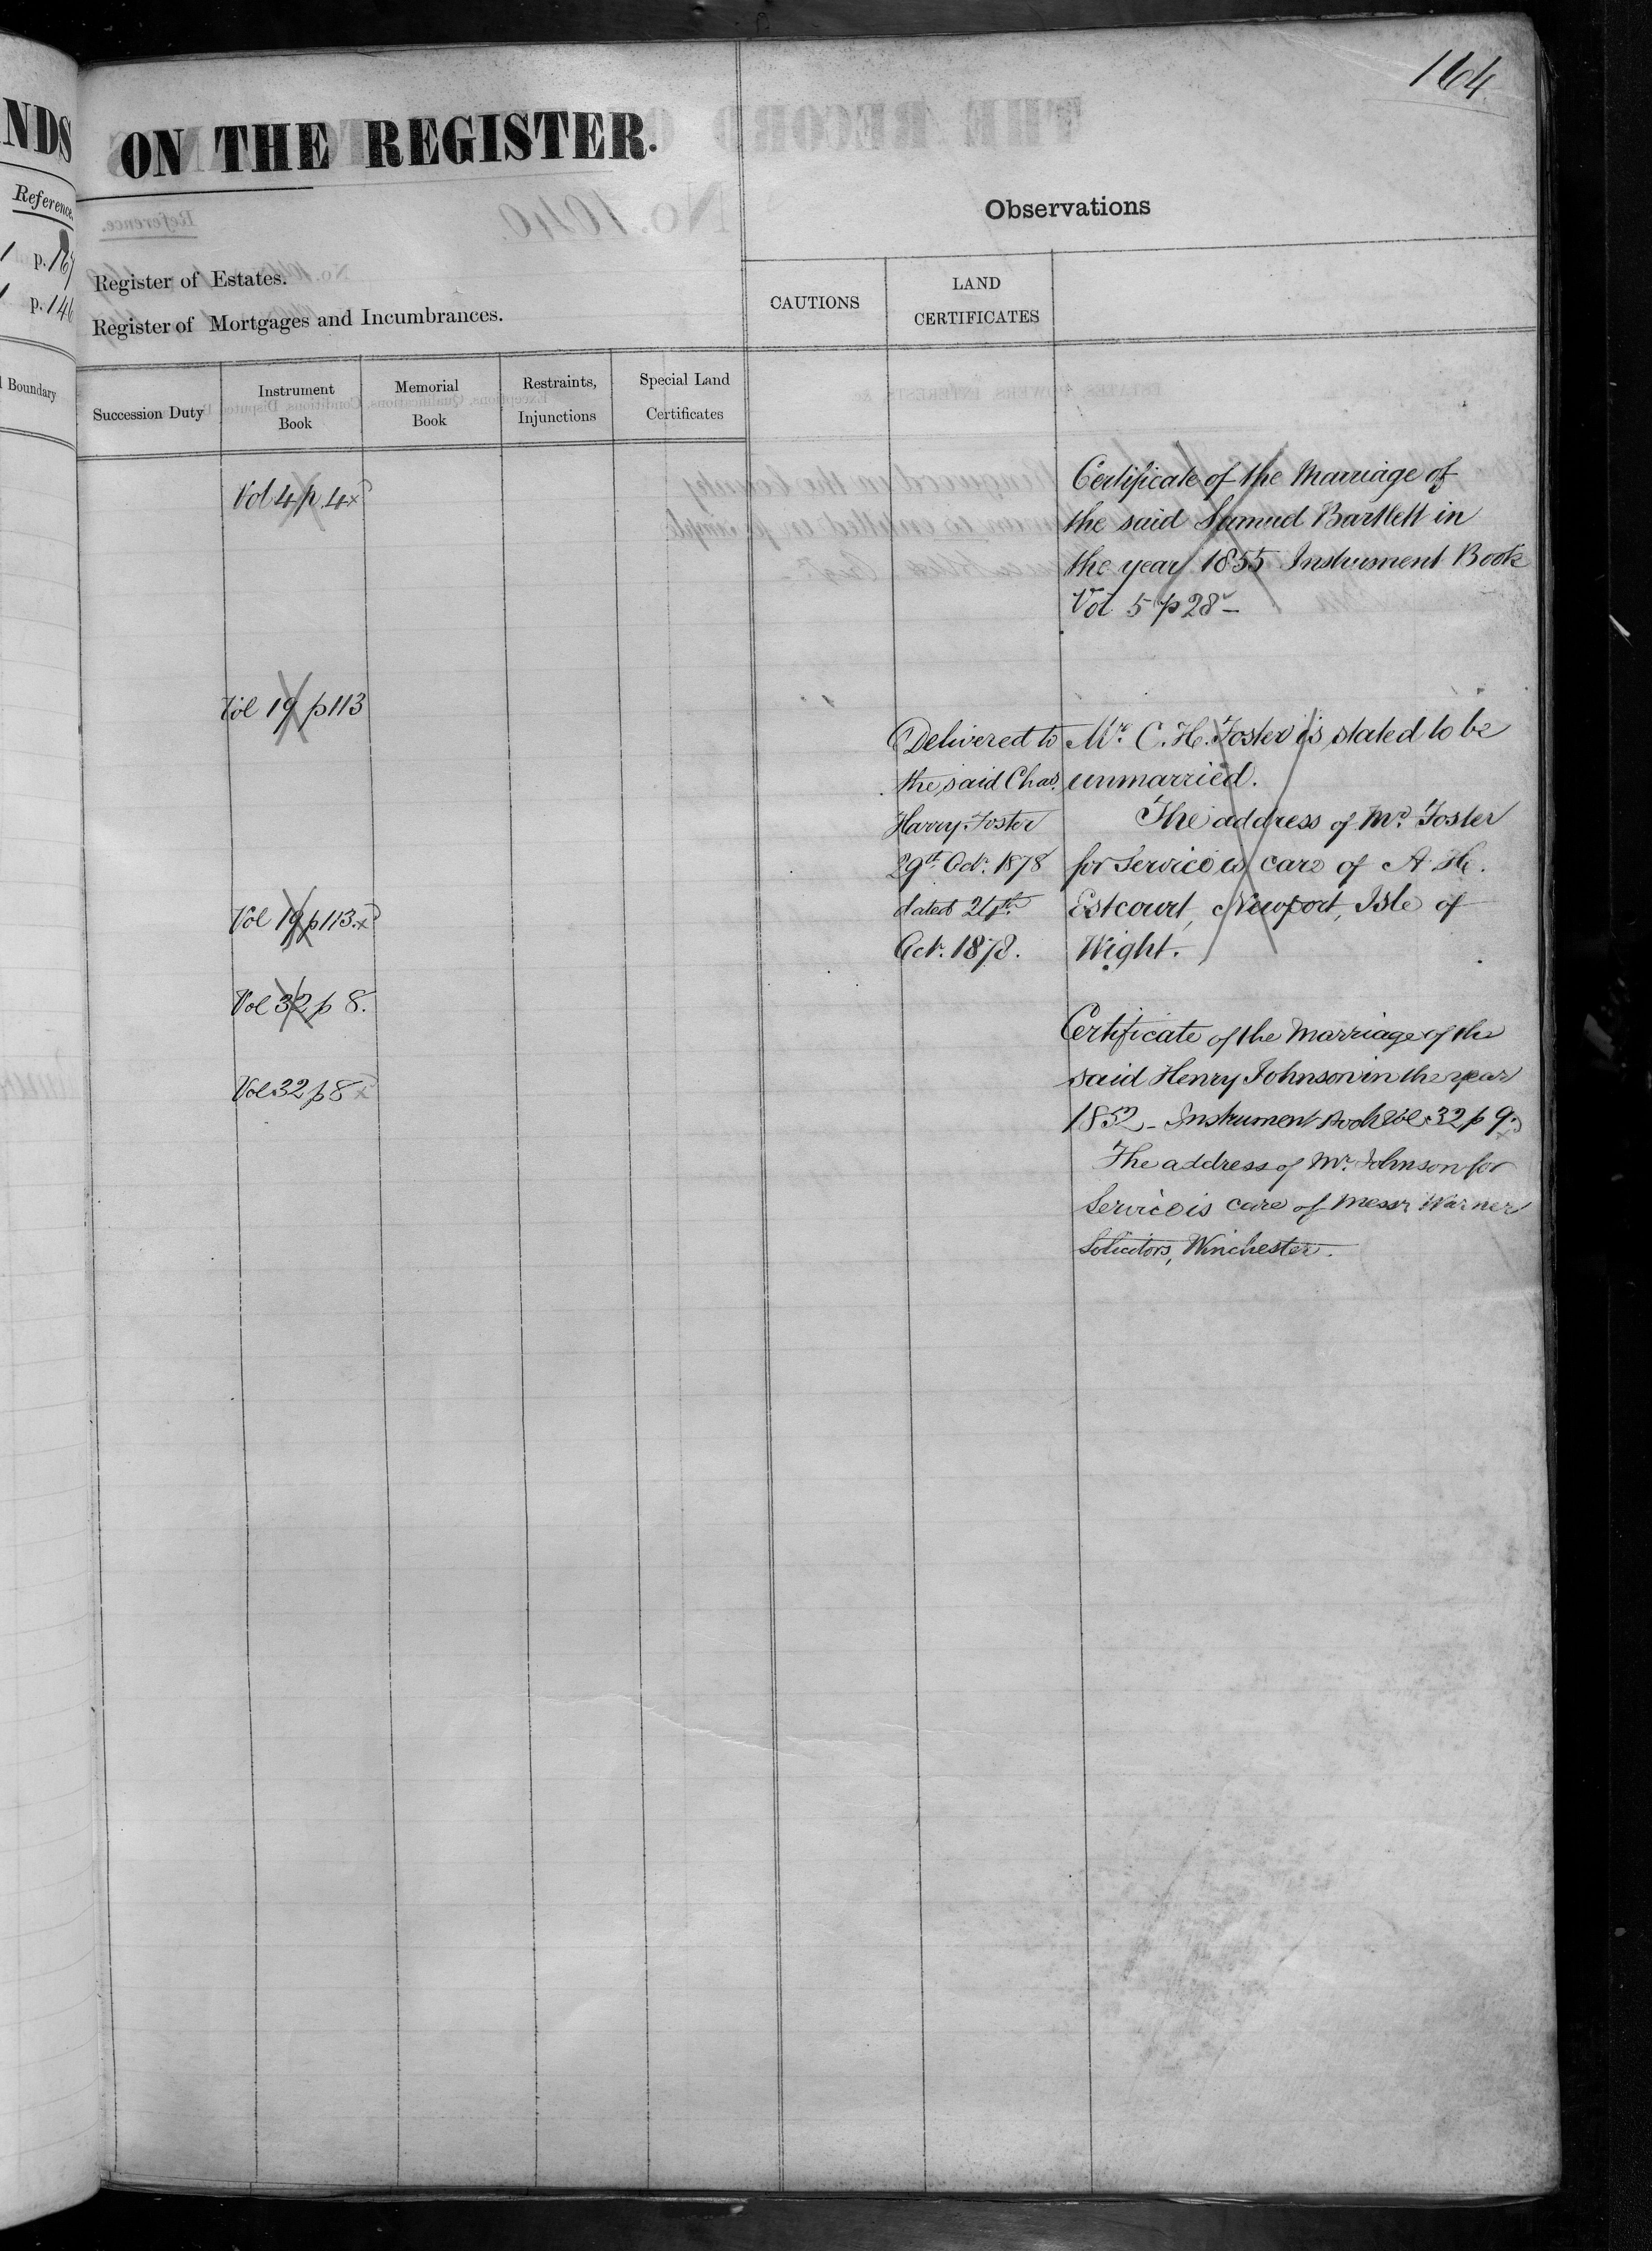 164
NDS
ON THE REGISTER.
Reference.
p. 146
Boundary
Observations
Register of Estates.
Register of Mortgages and Incumbrances.
CAUTIONS
LAND
CERTIFICATES
Succession Duty
Instrument
Book
Memorial
Book
Restraints,
Injunctions
Special Land
Certificates
Vol 4 p. 4
Certificate of the Marriage of
the said Samuel Bartlett in
the year 1855 Instrument Book
Vol 5 p 28 -
Vol 19 p 113
Delivered to
the said Chas.
Harry Foster
29th Octr. 1878
dated 24th
Octr. 1878.
Mr. C. H. Foster is stated to be
unmarried.
The address of Mr. Foster
for Service is care of A. H.
Estcourt, Newport, Isle of
Wight.
Vol 19 p 113.
Vol 32 p 8.
Vol 32 p 8
Certificate of the Marriage of the
said Henry Johnson in the year
1852 - Instrument Book Vol 32 p 9.
The address of Mr. Johnson for
Service is care of Messr Warner
Solicitors, Winchester.